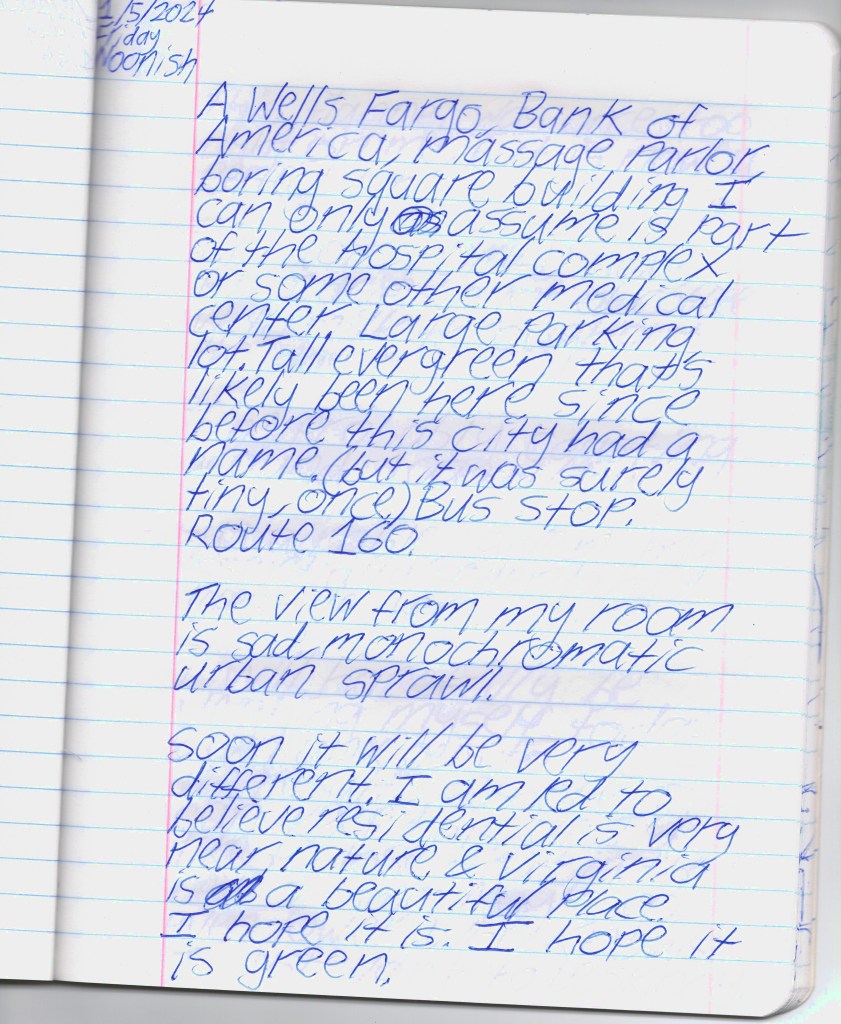 1/5/2024
Friday
Noonish
A Wells Fargo, Bank of
America, massage parlor,
boring square building I
can only assume is part
of the hospital complex
or some other medical
center. Large parking
lot. Tall evergreen that's
likely been here since
before this city had a
name. (but it was surely
tiny, once) Bus stop.
Route 160.
The view from my room
is sad, monochromatic
urban sprawl.
Soon it will be very
different. I am led to
believe residential is very
near nature, & Virginia
is a beautiful place.
I hope it is. I hope it
is green.